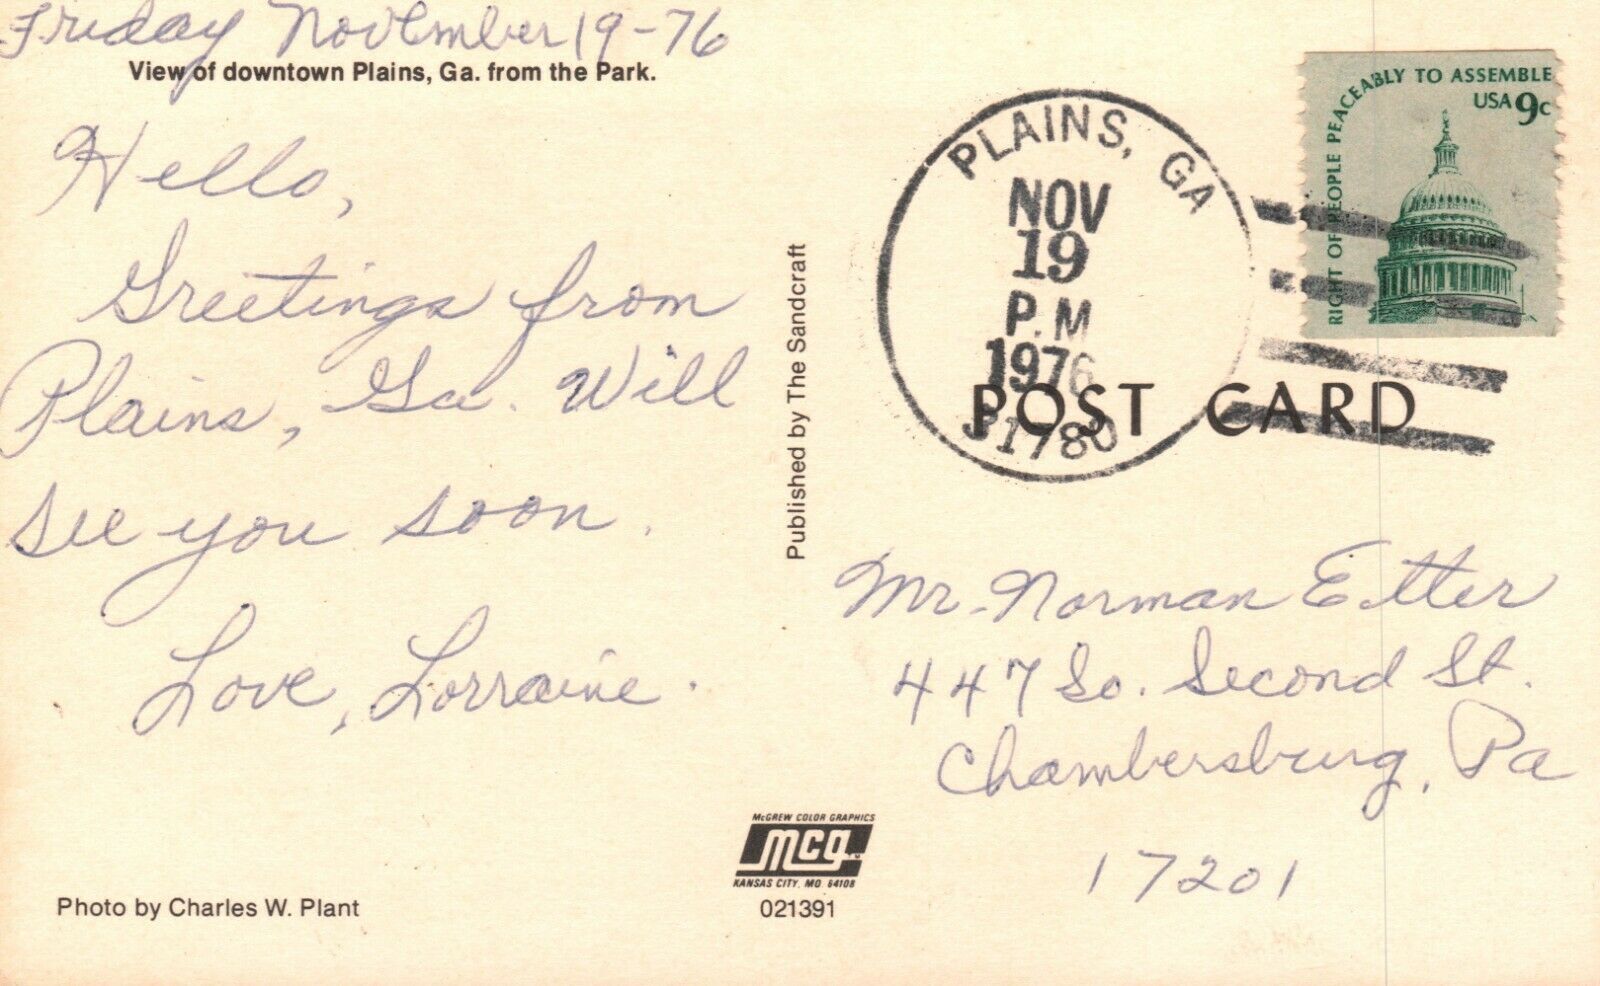 Friday November 19-76
View of downtown Plains, Ga. from the Park.
Hello,
Greetings from
Plains, Ga. Will
see you soon.
Love, Lorraine.
Photo by Charles W. Plant
Published by The Sandcraft
McGREW COLOR GRAPHICS
mcg™
KANSAS CITY, MO. 64108
021391
PLAINS, GA
NOV
19
P.M
1976
31780
RIGHT OF PEOPLE PEACEABLY TO ASSEMBLE
USA 9c
POST CARD
Mr. Norman Etter
447 So. Second St.
Chambersburg, Pa
17201